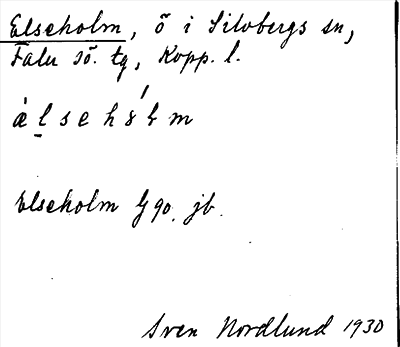 Elseholm, ö i Silvbergs sn,
Falu sö. tg, Kopp. l.
Elseholm 90. jb.
Sven Nordlund 1930